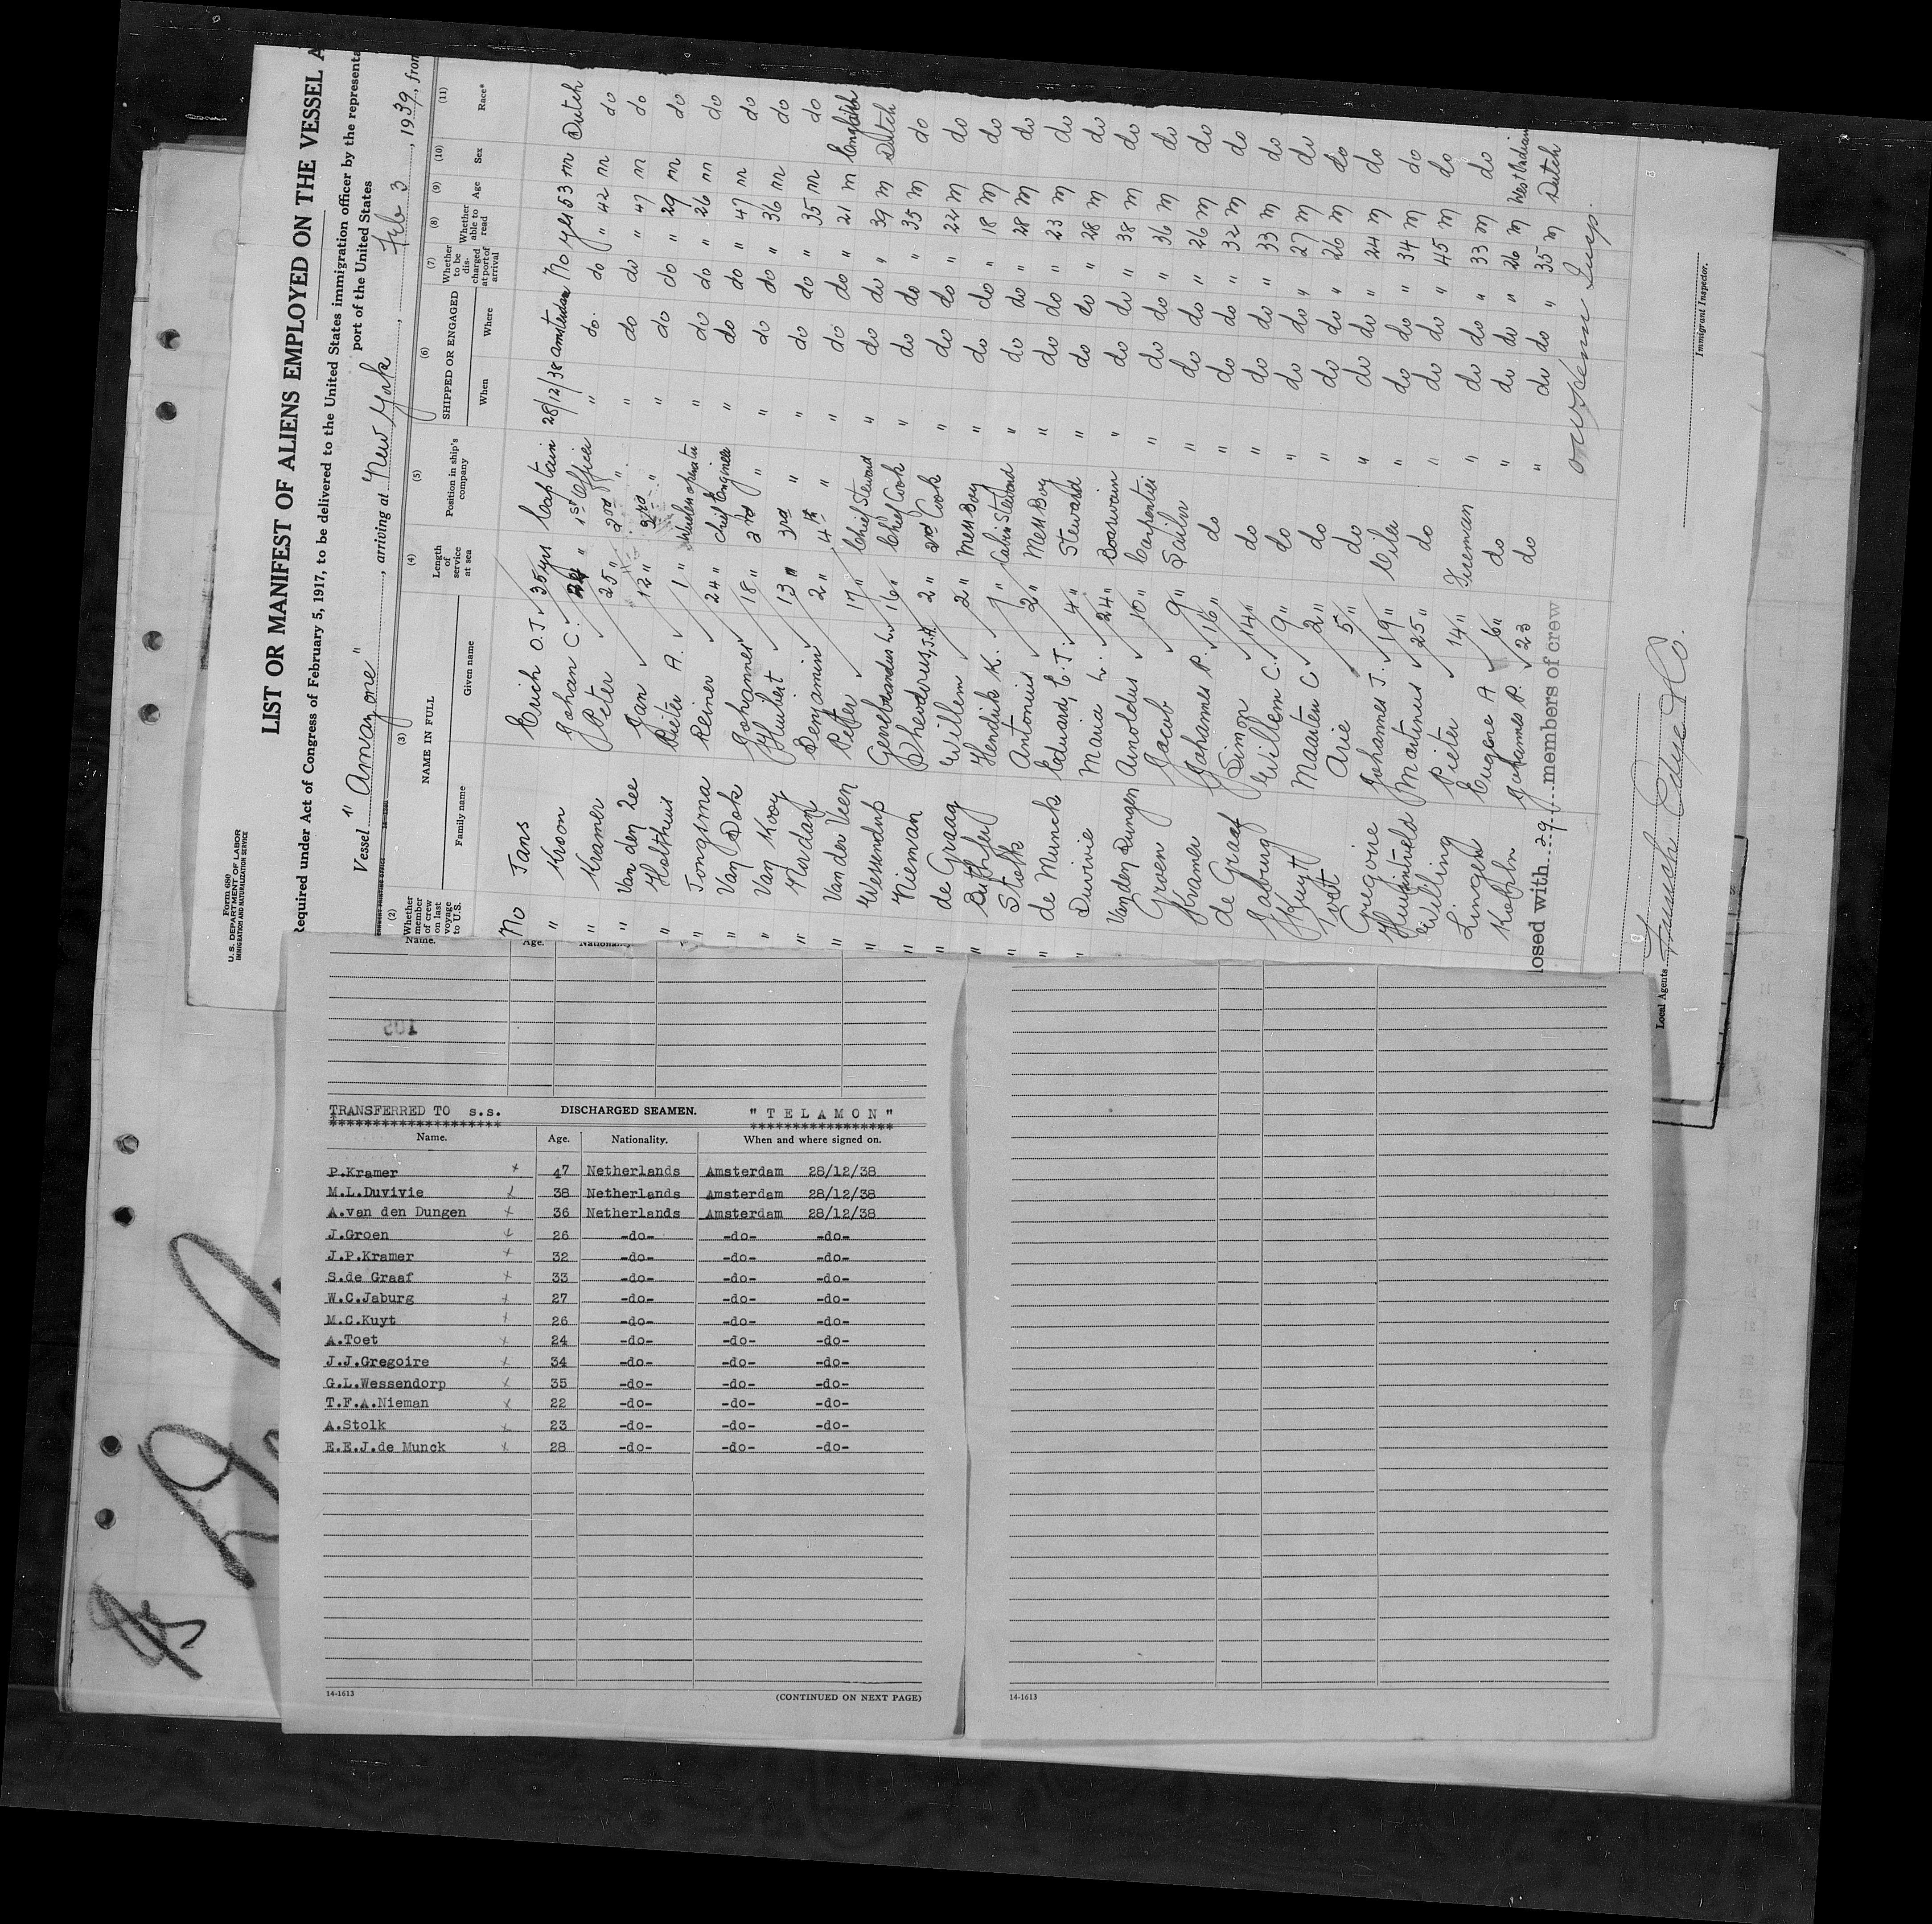 Form 680
U. S. DEPARTMENT OF LABOR
IMMIGRATION AND NATURALIZATION SERVICE
LIST OR MANIFEST OF ALIENS EMPLOYED ON THE VESSEL A
Required under Act of Congress of February 5, 1917, to be delivered to the United States immigration officer by the representa
port of the United States
Vessel "Amazone", arriving at New York, Feb 3, 1939, from
(2) (3) (4) (5) (6) (7) (8) (9) (10) (11)
Whether member of crew on last voyage to U.S. NAME IN FULL Length of service at sea Position in ship's company SHIPPED OR ENGAGED Whether to be discharged at port of arrival Whether able to read Age Sex Race*
Family name Given name When Where
No Jans Erich O.J. 35 yrs Captain 28/12/38 Amsterdam No yes 53 m Dutch
" Kroon Johan C. 24 " 1st Officer " do. do " 42 m do
" Kramer Peter 25 " 2nd " " do do " 47 m do
" Van der Zee Jan 12 " 3rd " " do do " 29 m do
" Holthuis Pieter A. 1 " Wireless operator " do do " 26 m do
" Jongsma Reimer 24 " Chief Engineer " do do " 47 m do
" Van Dok Johannes 18 " 2nd " " do do " 36 m do
" Van Kooy Huibert 13 " 3rd " " do do " 35 m do
" Benjamin 2 " 4th " " do do " 21 m English
" Van der Veen Peter 17 " Chief Steward " do do " 39 m Dutch
" Wessendurp L. 16 " Chief Cook " do do " 35 m do
" Nieman Theodorus, F.A. 2 " 2nd Cook " do do " 22 m do
" de Graag Willem 2 " Mess Boy " do do " 18 m do
" Hendrik K. 7 " Cabin Steward " do do " 28 m do
" Stolk Antonius 2 " Mess Boy " do do " 23 m do
" de Munck Eduard, E.J. 4 " Steward " do do " 28 m do
" Duvivie Maria L. 24 " Boatswain " do do " 38 m do
Van den Dungen Arnoldus 10 " Carpenter " do do " 36 m do
Groen Jacob 9 " Sailor " do do " 26 m do
Kramer Johannes P. 16 " do " do do " 32 m do
de Graaf Simon 14 " do " do do " 33 m do
Jaburg Willem C. 9 " do " do do " 27 m do
Kuyt Maarten C 2 " do " do do " 26 m do
Toet Arie 5 " do " do do " 24 m do
Gregoire Johannes J. 19 " Oiler " do do " 34 m do
Martinus 25 " do " do do " 45 m do
Willing Pieter 14 " Fireman " do do " 33 m do
Linger Eugene A 6 " do " do do " 26 m West Indian
Johannes P. 23 do " do do " 35 m Dutch
losed with 29 members of crew
Insp.
Immigrant Inspector.
Local Agents Funch Edye & Co.
Name. Age. Nationality.
102
TRANSFERRED TO s.s. DISCHARGED SEAMEN. "TELAMON"
******************** ****************
Name. Age. Nationality. When and where signed on.
P.Kramer 47 Netherlands Amsterdam 28/12/38
M.L.Duvivie 38 Netherlands Amsterdam 28/12/38
A.van den Dungen 36 Netherlands Amsterdam 28/12/38
J.Groen 26 -do- -do- -do-
J.P.Kramer 32 -do- -do- -do-
S.de Graaf 33 -do- -do- -do-
W.C.Jaburg 27 -do- -do- -do-
M.C.Kuyt 26 -do- -do- -do-
A.Toet 24 -do- -do- -do-
J.J.Gregoire 34 -do- -do- -do-
G.L.Wessendorp 35 -do- -do- -do-
T.F.A.Nieman 22 -do- -do- -do-
A.Stolk 23 -do- -do- -do-
E.E.J.de Munck 28 -do- -do- -do-
14-1613 (CONTINUED ON NEXT PAGE)
14-1613